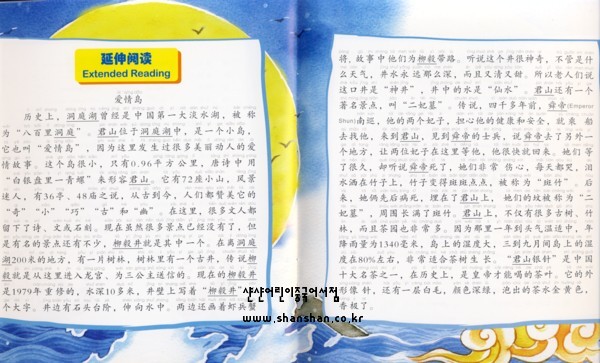 延伸阅读
Extended Reading
爱情岛
历史上，洞庭湖曾经是中国第一大淡水湖，被称
为“八百里洞庭”。君山位于洞庭湖中，是一个小岛，
它也叫“爱情岛”，因为这里发生过很多美丽动人的爱
情故事。这个岛很小，只有0.96平方公里，唐诗中用
“白银盘里一青螺”来形容君山。它有72座小山，风景
迷人，有36亭、48庙之说，从古到今，人们都赞美它的
“奇”“小”“巧”“古”和“幽”。在这里，很多文人都
留下了诗、文或石刻。现在虽然很多景点已经没有了，但
是有名的景点还有不少，柳毅井就是其中一个。在离洞庭
湖200米的地方，有一片树林，树林里有一个古井，传说柳
毅就是从这里进入龙宫，为三公主送信的。现在的柳毅井
是1979年重修的，水深10多米，井壁上写着“柳毅井”三
个大字。井边有石头台阶，伸向水中。两边还画着虾兵蟹
将，故事中他们为柳毅带路。听说这个井很神奇，不管是什
么天气，井水永远那么深，而且又清又甜。所以老人们说
这口井是“神井”，井中的水是“仙水”。君山还有一个
著名景点，叫“二妃墓”。传说，四千多年前，舜帝(Emperor
Shun)南巡，他的两个妃子，担心他的健康和安全，就乘船
去找他，来到君山，见到舜帝的士兵，说舜帝去了另外一
个地方，让两位妃子在这里等他，他很快就回来。她们等
了很久，却听说舜帝死了，她们非常伤心，每天都哭，泪
水洒在竹子上，竹子变得斑斑点点，被称为“斑竹”。后
来，她俩先后病死，埋在了君山上，她们的坟被称为“二
妃墓”，周围长满了斑竹。君山上，不仅有很多古树、竹
林，而且茶园也非常多。因为那里一年到头气温适中，年
降雨量为1340毫米，岛上的湿度大，三到九月间岛上的湿
度在80%左右，非常适合茶树生长。“君山银针”是中国
十大名茶之一，在历史上，是皇帝才能喝的茶叶。它的外
形像针，还有一层白毛，颜色深绿，泡出的茶水金黄色，
香极了。
샨샨어린이중국어서점
www.shanshan.co.kr